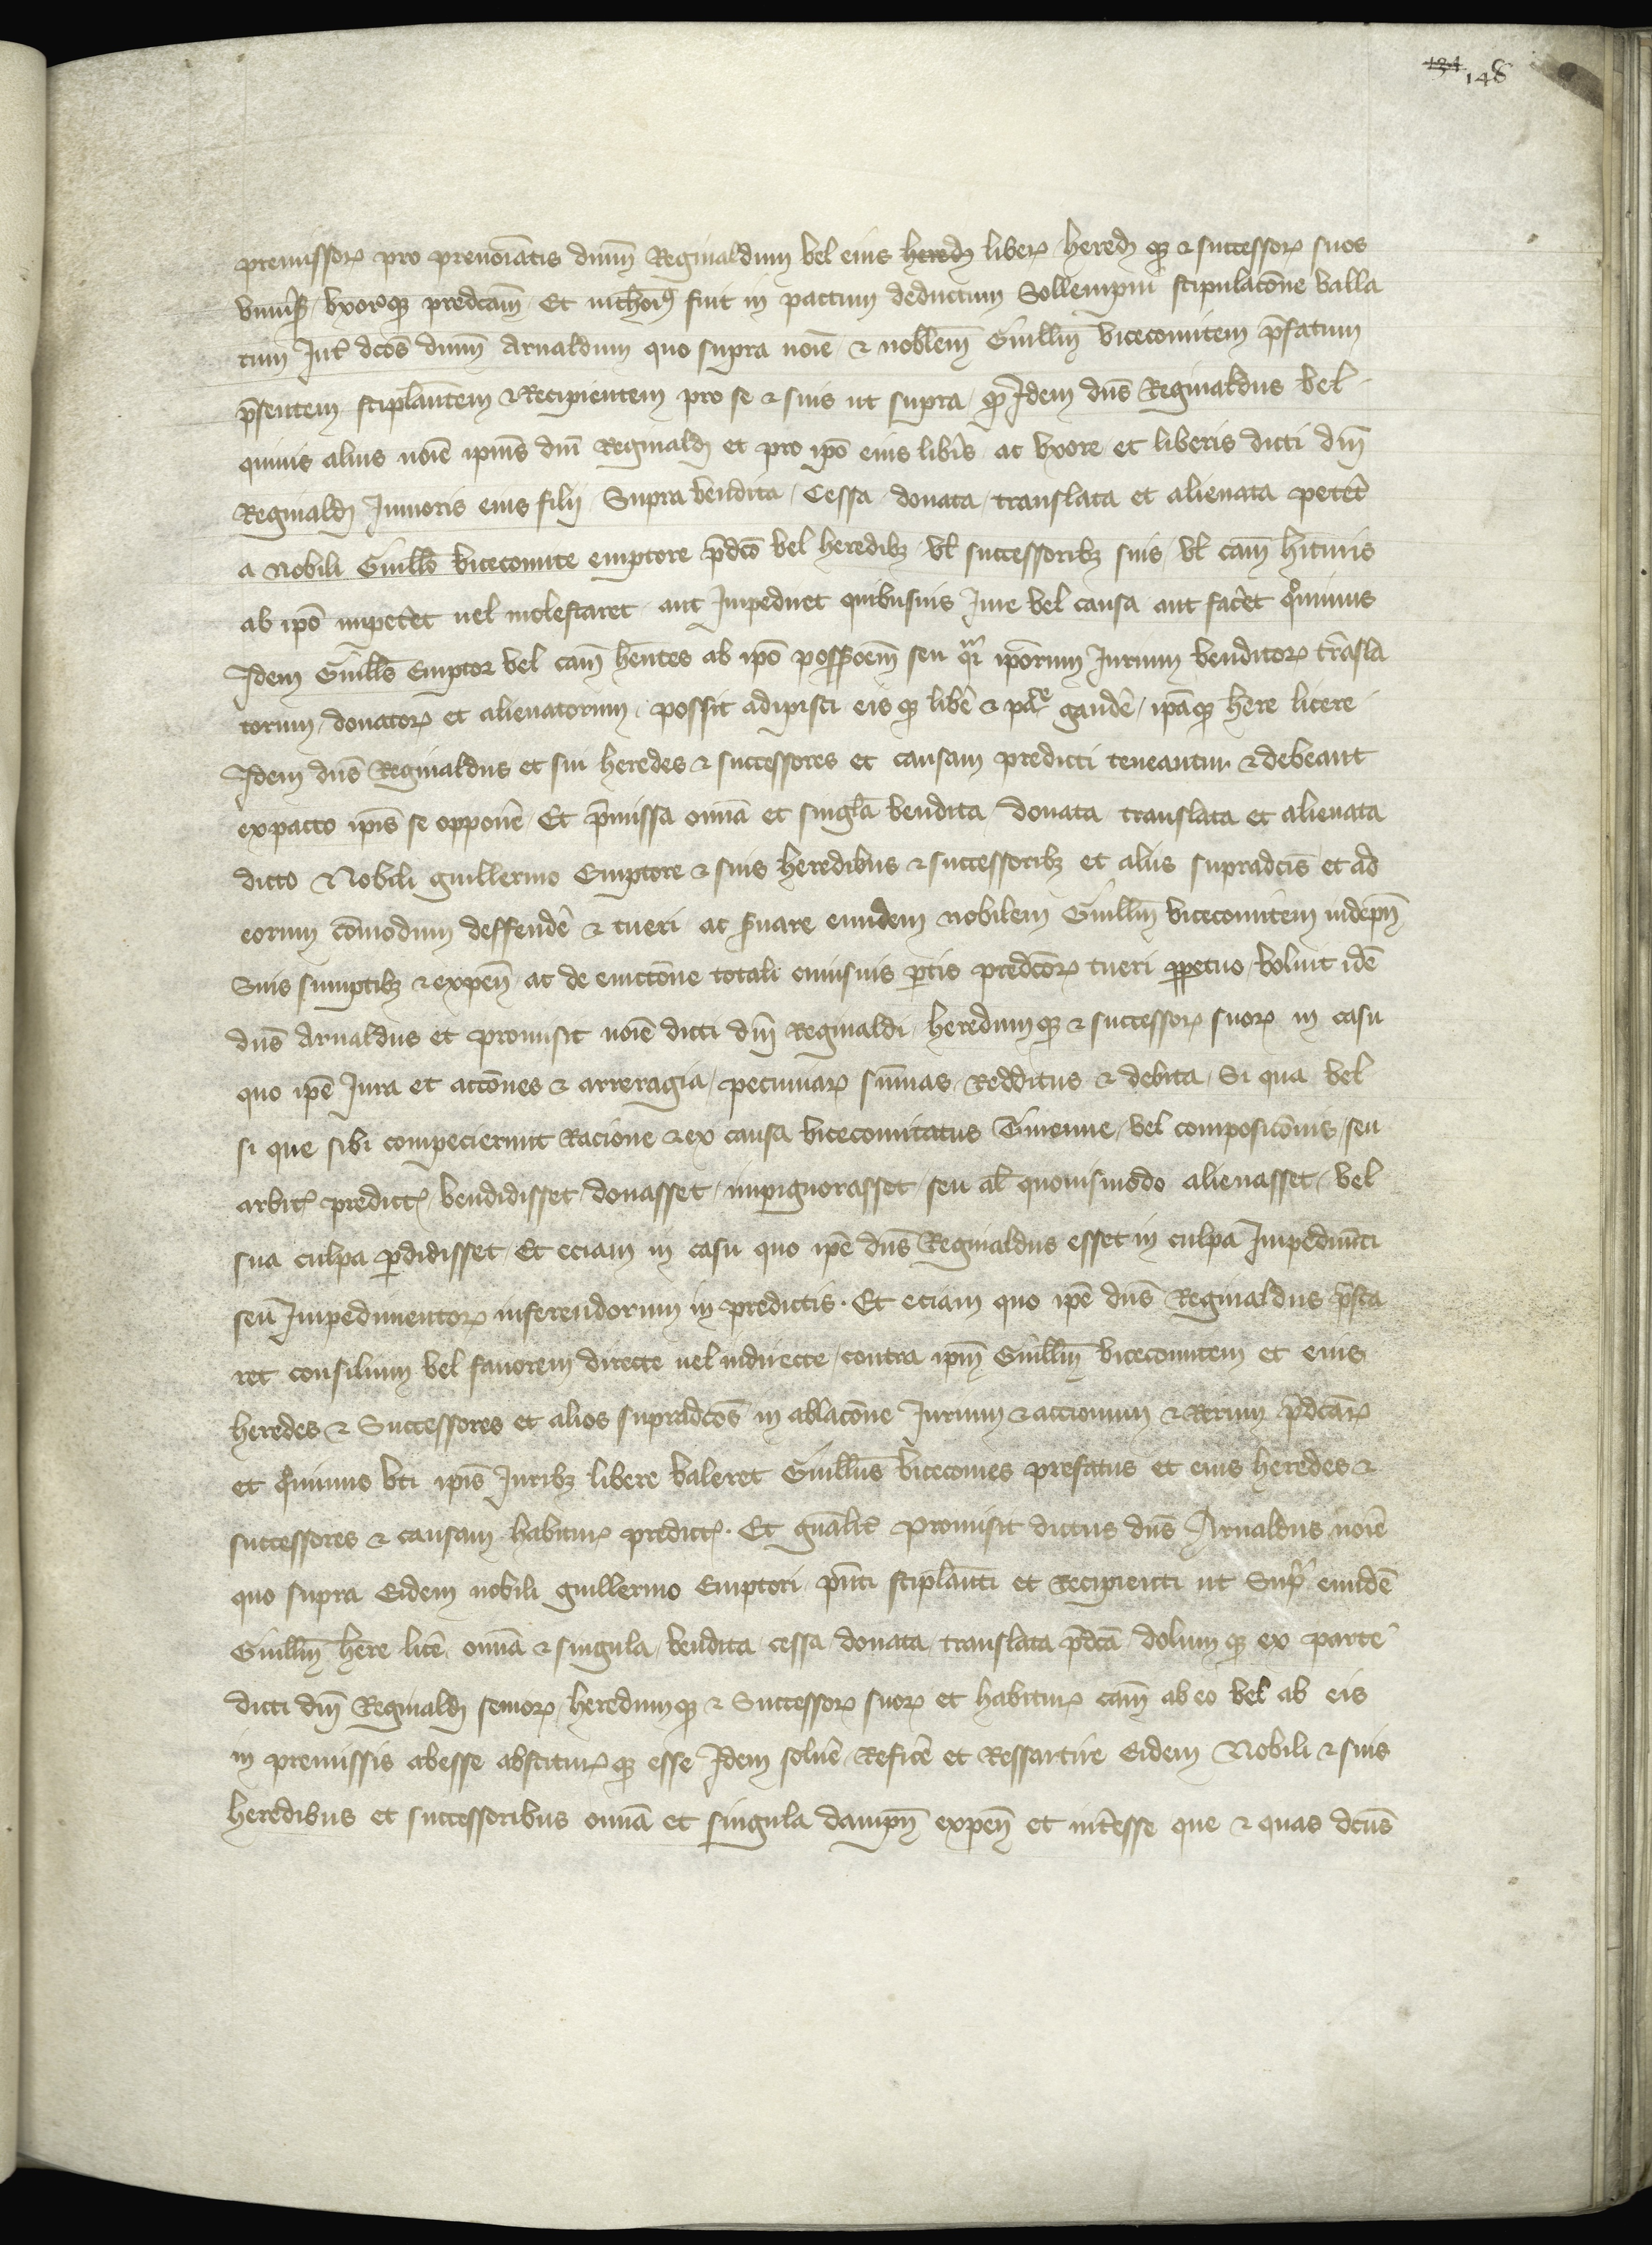 134 148
premissorꝝ pro prenoiatis dnm̄ Reginaldum vel eius hered liberꝝ heredꝫ qꝫ & successorꝝ suos
vniuˢꝫ vxorēqꝫ predcam̄ Et nichoĩꝰ fuit in pactum deductum Sollempni stipulacōne valla
tum Int̄ dcōs dnm̄ Arnaldum quo supra noīe & noblem̄ Guillm̄ vicecomitem p̄fatum
p̄sentem stiplantem & Recipientem pro se & suis ut supra qꝫ Idem dn̄s Reginaldus vel
quiuis alius noīe ipius dnī Reginaldꝫ et pro ipō eius libīs ac vxore et liberis dicti dnī
Reginaldꝫ Junioris eius filij Supra vendita Cessa donata translata et alienata petēt
a Nobili Guillō vicecomite emptore p̄dcō vel heredibꝫ vl̄ successoribꝫ suis vl̄ cam̄ hituris
ab ipō impetēt uel molestaret aut Impediret quibusuis Jure vel causa aut facēt qͦminus
Idem Guillō Emptor vel cam̄ hēntes ab ipō possōem̄ seu qͣi ipōrum Jurium venditorꝝ trāsla
torum donatorꝝ et alienatorum possit adipisci eis qꝫ libē & pace gaudē ipāqꝫ here licere
Idem dn̄s Reginaldus et sui heredes & successores et causam predicti teneantur & debeant
ex pacto ipīs se opponē Et p̄missa omīa et singl̄a vendita donata translata et alienata
dicto Nobili guillermo Emptore & suis heredibus & successoribꝫ et aliis supradcīs et ad
eorum cōmodum deffendē & tueri ac seruare eundem nobilem Guillm̄ vicecomitem indepn̄
Suis sumptibꝫ & expen̄ ac de euictōne totali cuiusuis ꝑtis predcōrꝝ tueri ꝑpetuo voluit idē
dn̄s Arnaldus et promisit noīe dicti dnī Reginaldi heredumqꝫ & successorꝝ suorꝝ in casu
quo ipē Jura et actōnes & arreragia pecuniarꝝ sūmas Redditus & debita Si qua vel
si que sibi compecierunt Racione & ex causa vicecomitatus Thuenne vel composicōnis seu
arbitꝝ predictꝝ vendidisset donasset impignorasset seu al̄ quouismodo alienasset vel
sua culpa ꝑdidisset Et eciam in casu quo ipē dn̄s Reginaldus esset in culpa Impedimēti
seu Impedimentorꝝ inferendorum in predictis. Et eciam quo ipē dn̄s Reginaldus p̄sta
ret consilium vel fauorem directe uel indirecte contra ipm̄ Guillm̄ vicecomitem et eius
heredes & Successores et alios supradcōs in ablacōne Jurium & accionum & Rerum p̄dcarꝝ
et qͦminus vti ipīs Juribꝫ libere valeret Guillūs vicecomes prefatus et eius heredes &
successores & causam habiturꝝ predictꝝ. Et gnālit̄ promisit dictus dn̄s Arnaldus noīe
quo supra Eidem nobili guillermo Emptori pn̄ti stiplanti et Recipienti ut Supͣ eundē
Guillm̄ here licē omīa & singula vendita cessa donata translata p̄dcā dolum qꝫ ex parte
dicti dnī Reginaldꝫ seniorꝝ heredumqꝫ & Successorꝝ suorꝝ et habiturꝝ cam̄ ab eo vel ab eis
in premissis abesse abfuturꝝ qꝫ esse Idem soluē Reficē et Ressartire Eidem Nobili & suis
heredibus et successoribus omīa et singula dampn̄ expen̄ et int̄esse que & quas dcūs